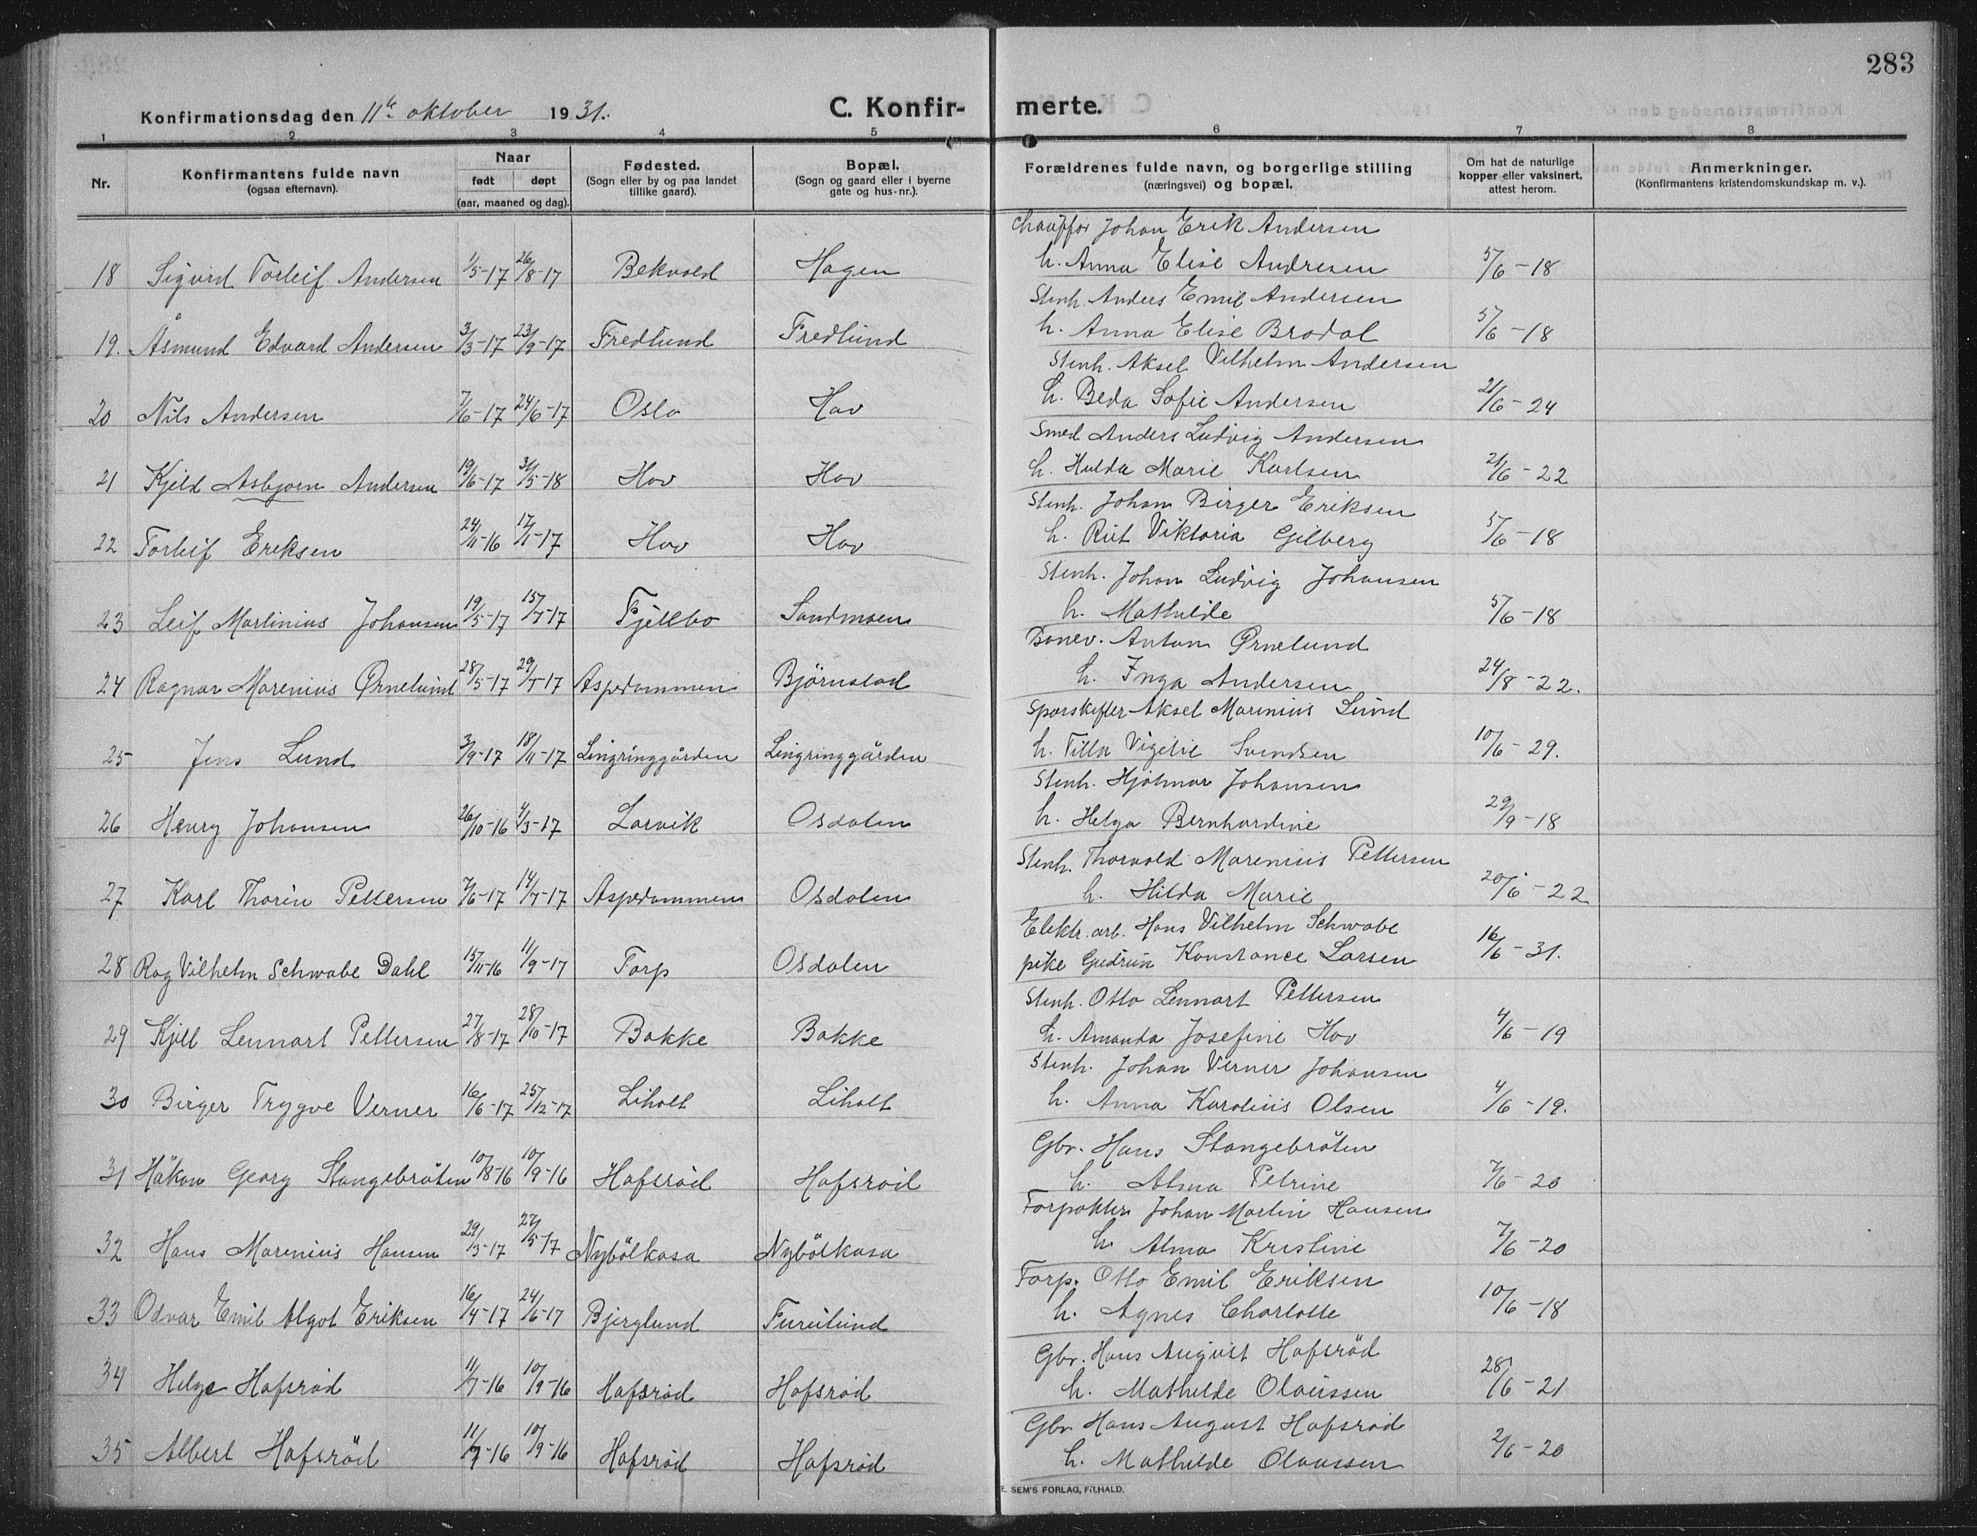 283
Konfirmationsdag den 11te oktober 1931.
C. Konfir- merte.
1 2 3 4 5 6 7 8
Nr.
Konfirmantens fulde navn
(ogsaa efternavn).
Naar
født døpt
(aar, maaned og dag).
Fødested.
(Sogn eller by og paa landet
tillike gaard).
Bopæl.
(Sogn og gaard eller i byerne
gate og hus-nr.).
Forældrenes fulde navn, og borgerlige stilling
(næringsvei) og bopæl.
Om hat de naturlige
kopper eller vaksinert,
attest herom.
Anmerkninger.
(Konfirmantens kristendomskundskap m. v.).
Chauffør Johan Erik Andersen
18 Sigurd Torleif Andersen 1/5-17 26/8-17 Bekvold Hagen h. Anna Elise Andresen 5/6-18
Stenh. Anders Emil Andersen
19. Åsmund Edvard Andersen 3/3-17 23/9-17 Fredlund Fredlund h. Anna Elise Brodal 5/6-18
Stenh. Aksel Vilhelm Andersen
20 Nils Andersen 7/6-17 24/6-17 Oslo Hov h. Beda Sofie Andersen 21/6-24
Smed Anders Ludvig Andersen
21 Kjeld Asbjørn Andersen 19/6-17 31/5-18 Hov Hov h. Hulda Marie Karlsen 21/6-22
Stenh. Johan Birger Eriksen
22 Torleif Eriksen 24/11-16 17/1-17 Hov Hov h. Rut Viktoria Gilberg 5/6-18
Stenh. Johan Ludvig Johansen
23 Leif Martinius Johansen 19/5-17 15/7-17 Fjellbo Sandmoen h. Mathilde 5/6-18
Banev. Anton Ørnelund
24 Ragnar Marenius Ørnelund 28/5-17 29/7-17 Aspedammen Bjørnstad h. Inga Andersen 24/8-22.
Sporskifter Aksel Marinius Lund
25 Jens Lund 3/9-17 18/11-17 Lingringgården Lingringgården h. Tilla Vigelie Svendsen 10/6-29.
Stenh. Hjalmar Johansen
26 Henry Johansen 26/10-16 4/3-17 Larvik Osdalen h. Helga Bernhardine 29/9-18
Stenh. Thorvald Marenius Pettersen
27 Karl Thorin Pettersen 7/6-17 14/7-17 Aspedammen Osdalen h. Hilda Marie 20/6-22
Elektr. arb. Hans Vilhelm Schwabe
28 Rag Vilhelm Schwabe Dahl 15/11-16 11/9-17 Torp Osdalen pike Gudrun Konstance Larsen 16/6-31.
Stenh. Otto Lennart Pettersen
29 Kjell Lennart Pettersen 27/8-17 28/10-17 Bakke Bakke h. Amanda Josefine Hov 4/6-19
Stenh. Johan Verner Johansen
30 Birger Trygve Verner 16/6-17 25/12-17 Liholt Liholt h. Anna Karolius Olsen 4/6-19.
Gbr. Hans Stangebråten
31 Håkon Georg Stangebråten 10/8-16 10/9-16 Hafsrød Hafsrød h. Alma Petrine 7/6-20
Forpakter Johan Martin Hansen
32 Hans Marenius Hansen 29/3-17 27/5-17 Nybölkasa Nybölkasa h. Alma Kristine 7/6-20
Forp. Otto Emil Eriksen
33 Odvar Emil Algot Eriksen 16/4-17 24/6-17 Bjerglund Furulund h. Agnes Charlotte 10/6-18
Gbr. Hans August Hafsrød
34 Helge Hafsrød 11/7-16 10/9-16 Hafsrød Hafsrød h. Mathilde Olaussen 28/6-21
Gbr Hans August Hafsrød
35 Albert Hafsrød 11/7-16 10/9-16 Hafsrød Hafsrød h. Mathilde Olaussen 2/6-20
E. SEM'S FORLAG, F.HALD.